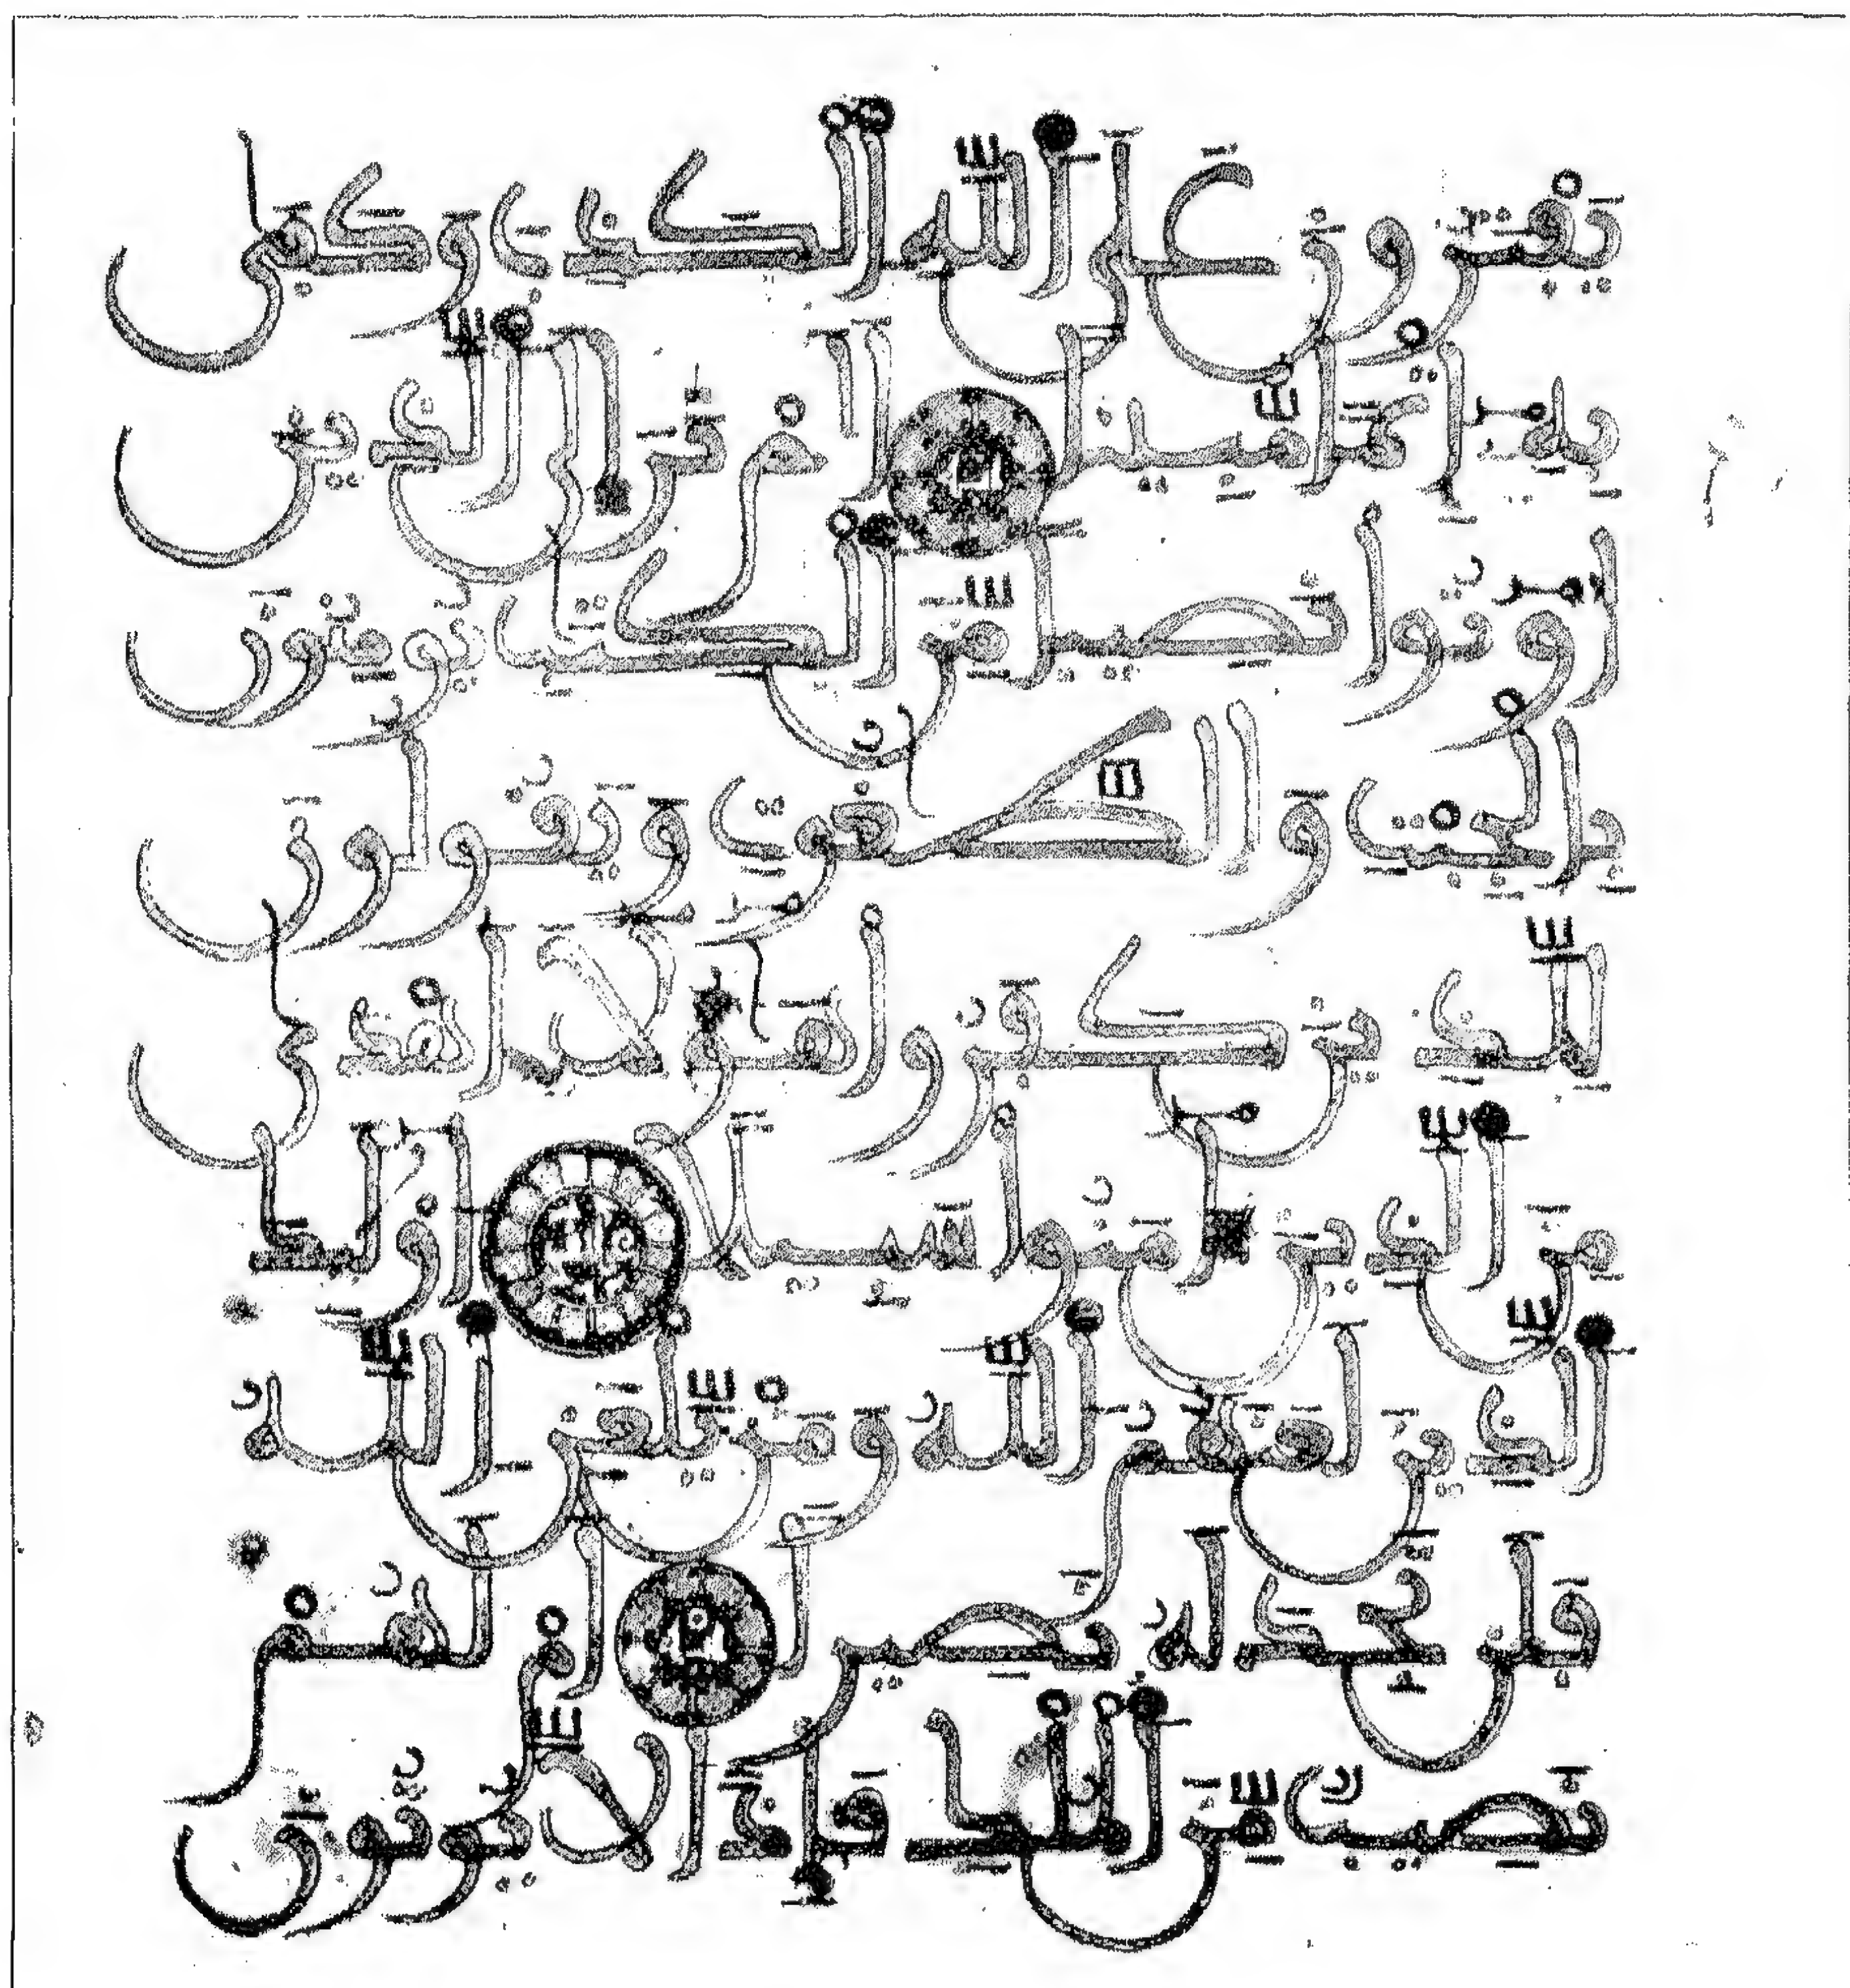 يَفْتَرُونَ عَلَى ٱللَّهِ ٱلْكَذِبَ وَكَفَىٰ
بِهِۦٓ إِثْمًا مُّبِينًا أَلَمْ تَرَ إِلَى ٱلَّذِينَ
أُوتُوا۟ نَصِيبًا مِّنَ ٱلْكِتَٰبِ يُومِنُونَ
بِٱلْجِبْتِ وَٱلطَّٰغُوتِ وَيَقُولُونَ
لِلَّذِينَ كَفَرُوا۟ هَٰٓؤُلَآءِ اَهْدَىٰ
مِنَ ٱلَّذِينَ ءَامَنُوا۟ سَبِيلًا أُو۟لَٰٓئِكَ
ٱلَّذِينَ لَعَنَهُمُ ٱللَّهُ وَمَنْ يَّلْعَنِ ٱللَّهُ
فَلَن تَجِدَ لَهُۥ نَصِيرًا أَمْ لَهُمْ
نَصِيبٌ مِّنَ ٱلْمُلْكِ فَإِذًا لَّا يُوتُونَ